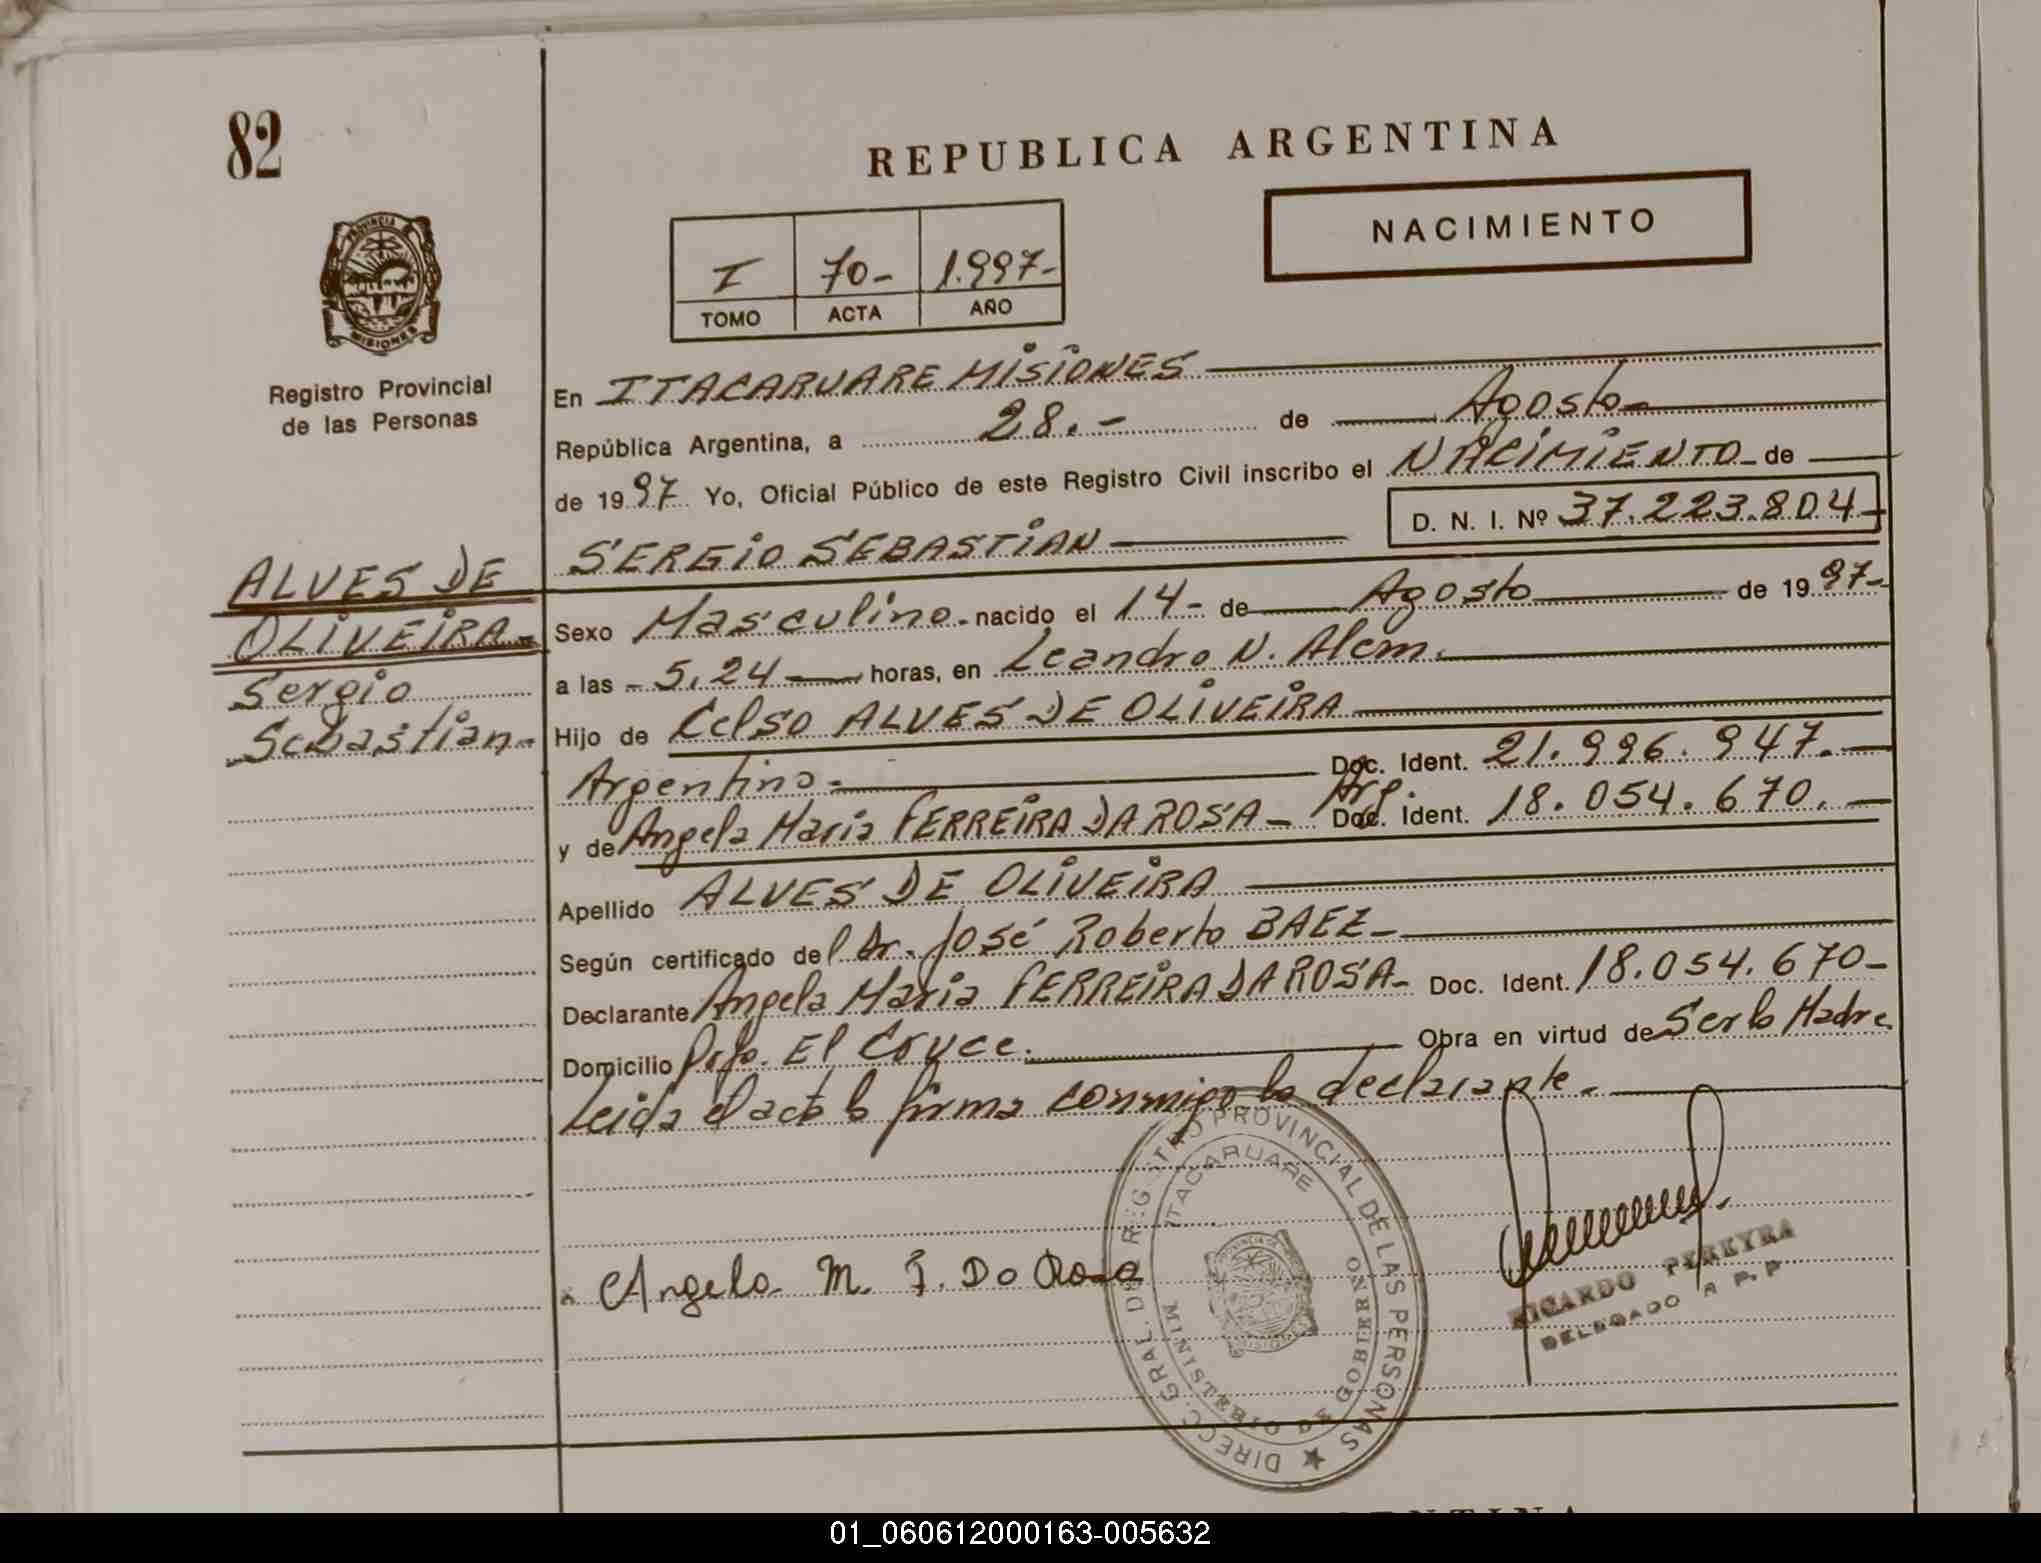 82
REPUBLICA ARGENTINA
NACIMIENTO
I 70- 1.997-
TOMO ACTA AÑO
PROVINCIA
MISIONES
Registro Provincial
de las Personas
ALVES DE
OLIVEIRA-
Sergio
Sebastian-
En ITACARUARE MISIONES
República Argentina, a 28.- de Agosto-
de 1997 Yo, Oficial Público de este Registro Civil inscribo el NACIMIENTO- de
D. N. I. Nº 37.223.804-
SERGIO SEBASTIAN
Sexo Masculino- nacido el 14- de Agosto de 1997-
a las - 5,24 horas, en Leandro N. Alem.
Hijo de Celso ALVES DE OLIVEIRA
Argentino.- Doc. Ident. 21.996.947.-
Arg.
y de Angela Maria FERREIRA DA ROSA- Doc. Ident. 18.054.670.-
Apellido ALVES DE OLIVEIRA
Según certificado del Dr. José Roberto BAEZ-
Declarante Angela Maria FERREIRA DA ROSA- Doc. Ident. 18.054.670-
Domicilio El Obra en virtud de Ser la Madre
Leida el acta la firma conmigo la declarante.
Angela M. F. Da Rosa
DIREC. GRAL. DEL REGISTRO PROVINCIAL DE LAS PERSONAS
ITACARUARE
MINISTERIO DE GOBIERNO
RICARDO PEREYRA
DELEGADO R P. P
01_060612000163-005632